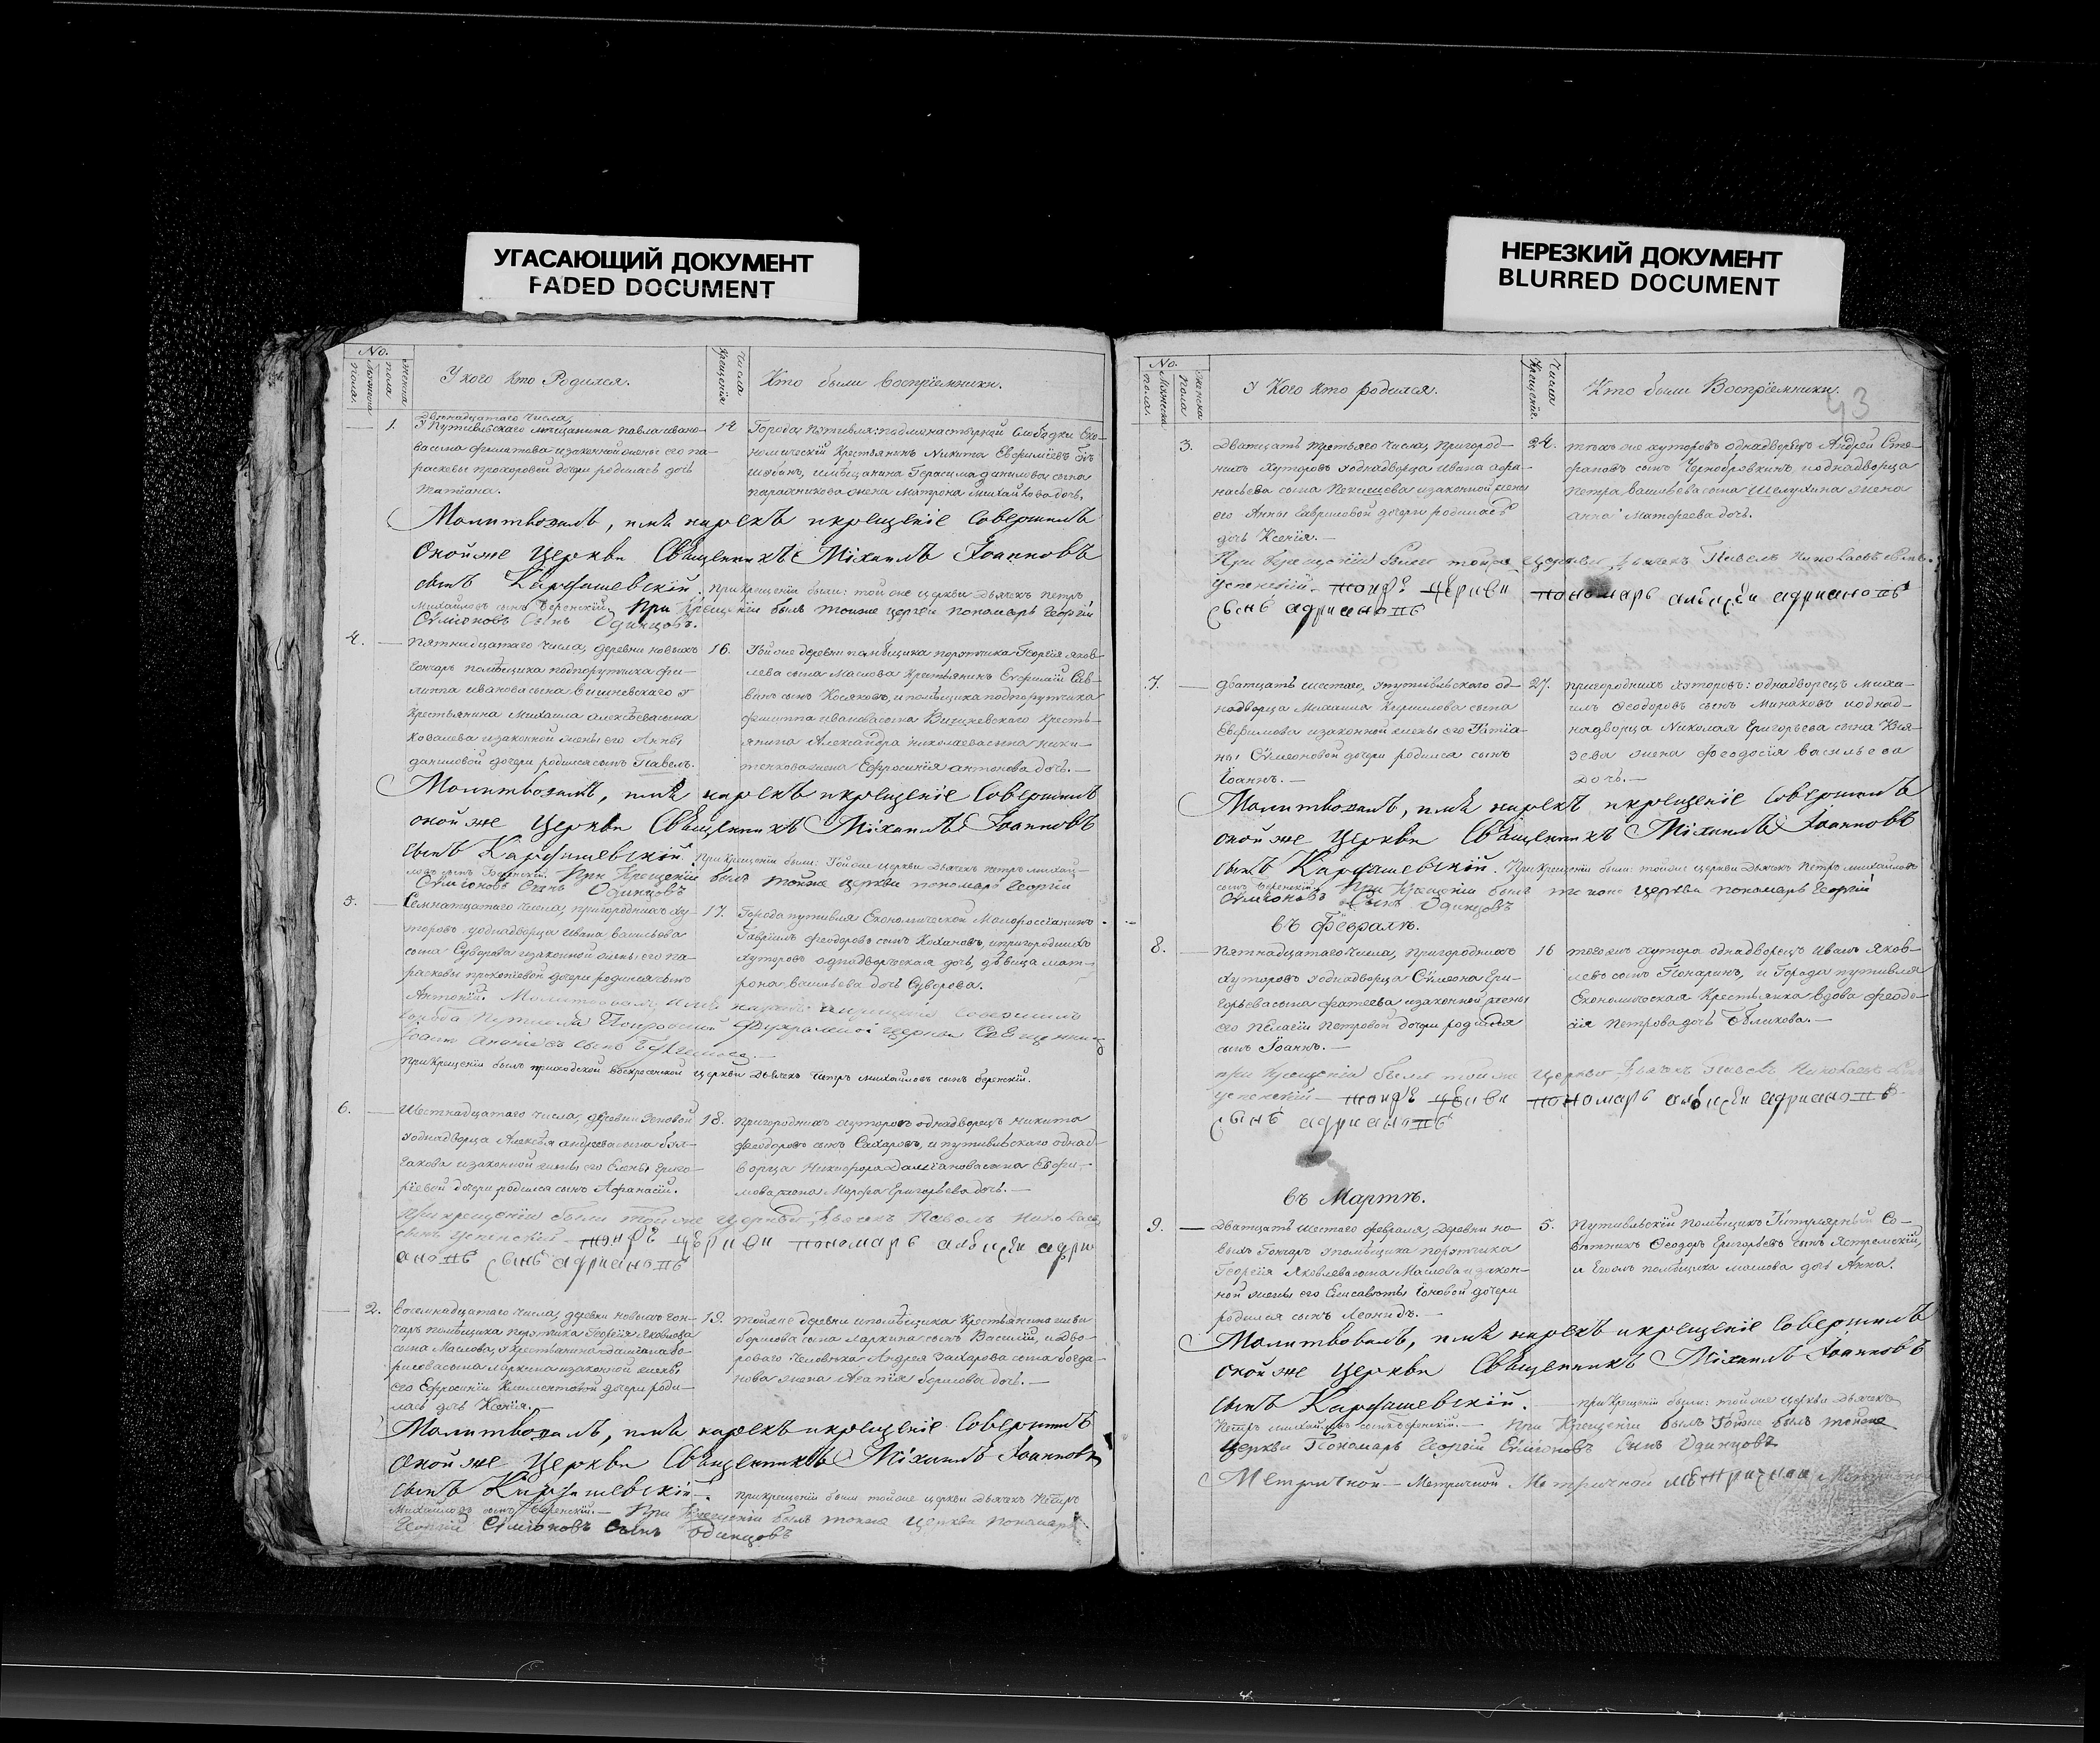 УГАСАЮЩИЙ ДОКУМЕНТ
FADED DOCUMENT
No.
Мужеска пола.
Женска пола
У кого кто Родился.
Числа Крещенія
Кто были Воспріемники.
1.
Двенадцатаго числа,
У Путивльскаго мещанина павла ивано-
васына филатова изаконной жены его па-
расковы прохоровой дочери родилась дочь
татіана.
12
Города Путивля подмонастырной слободки Эко-
номический Крестьянинъ Никита Евфиміевъ
имещанина Герасима данилова сына
жена Матрона Михайлова дочь.
Молитвовалъ, имя нарекъ икрещеніе Совершилъ
Оной же Церкви Священникъ Михаилъ Іоанновъ
сынъ Карташевскій. При крещеніи были: той же церкви Дьячекъ петръ
Михайловъ сынъ Веренскій. При Крещеніи былъ тойже церкви пономарь Георгій
Сѵмеоновъ Сынъ Одинцовъ.
4.
Пятнадцатаго числа, деревни новыхъ
Гончаръ помѣщика подпорутчика фи-
липпа иванова сына Вишневскаго у
Крестьянина Михаила алексѣевасына
Ковалева изаконной жены его Анны
даниловой дочери родился сынъ Павелъ.
16.
Тойже деревни помѣщика порутчика Георгія яков-
лева сына Маслова Крестьянинъ Сав-
винъ сынъ Косяковъ, ипомѣщика подпорутчика
филиппа ивановасына Вишневскаго кресть-
янина Александра николаевасына
жена Ефросинія антонова дочь.
Молитвовалъ, имя нарекъ икрещеніе Совершилъ
оной же Церкви Священникъ Михаилъ Іоанновъ
сынъ Карташевскій. При Крещеніи были: Тойже церкви Дьячекъ петръ михай-
ловъ сынъ Веренскій. При Крещеніи былъ тойже церкви пономарь Георгій
Сѵмеоновъ Сынъ Одинцовъ
5.
Семнатцатаго числа, пригородныхъ ху-
торовъ уоднадворца ивана васильева
сына Суворова изаконной жены его па-
расковы прокопіевой дочери родился сынъ
Антоній.
17.
Города путивля Економической Малороссіянинъ
Гавріилъ феодоровъ сынъ Кохановъ, ипригородныхъ
хуторовъ однадворческая дочь, дѣвица мат-
рона васильева дочь Суворова.
При Крещеніи былъ приходской воскресенской церкви Дьячекъ петръ михайловъ сынъ Веренскій.
6.
Шестнадцатаго числа, деревни Зеновой
уоднадворца Алексѣя андреева сына бул-
гакова изаконной жены его Елены григо-
ріевой дочери родился сынъ Афанасій.
18.
Пригородныхъ хуторовъ однадворецъ никита
феодоровъ сынъ Сахаровъ, и путивльскаго однад-
ворца Никифора Даміановасына Евфи-
мова жена Марфа Григорьева дочь.
При крещеніи были тойже церкви, Дьячекъ Павелъ Николаевъ
сынъ Успенскій. тояжъ церкви пономарь алексѣй адри
ановъ сынъ адриановъ
2.
Восемнадцатаго числа, деревни новыхъ гон-
чаръ помѣщика порутчика Георгія Яковлева
сына Маслова, у крестьянина Даміана бо-
рисовасына ларкина изаконной жены
его Ефросиніи Климентовой дочери роди-
лась дочь Ксенія.
19.
тойже деревни ипомѣщика Крестьянина
борисова сына ларкина сынъ Василій, и дво-
роваго человѣка Андрея Захарова сына богда-
нова жена Агапія борисова дочь.
Молитвовалъ, имя нарекъ икрещеніе Совершилъ
Оной же Церкви Священникъ Михаилъ Іоанновъ
сынъ Карташевскій. При крещеніи были тойже церкви Дьячекъ Петръ
Михайловъ сынъ Веренскій. При Крещеніи былъ тойже Церкви Пономарь
Георгій Сѵмеоновъ Сынъ Одинцовъ
НЕРЕЗКИЙ ДОКУМЕНТ
BLURRED DOCUMENT
93
No.
Мужеска пола.
Женска пола
У Кого кто родился.
Числа Крещенія.
Кто были Воспріемники.
3.
Дватцать третьяго числа, пригород-
ныхъ хуторовъ уоднадворца ивана афа-
насьева сына изаконной жены
его Анны Гавриловой дочери родилась
дочь Ксенія.
24.
тѣхъ же хуторовъ однадворецъ Андрей Сте-
фановъ сынъ Чернобровкинъ, иоднадворца
петра васильева сына Шелухина жена
анна Матфеева дочь.
При Крещеніи были тойже церкви, Дьячекъ Павелъ Николаевъ сынъ
Успенскій. тояжъ церкви пономарь алексѣй адриановъ
сынъ адриановъ
7.
Дватцать шестаго, упутивльскаго од-
надворца Михаила Кирилова сына
Евфимова изаконной жены его Татіа-
ны Сѵмеоновой дочери родился сынъ
Іоаннъ.
27.
пригородныхъ хуторовъ: однадворецъ миха-
илъ Феодоровъ сынъ Минаковъ иоднад-
надворца Николая Григорьева сына Кня-
зева жена феодосія васильева
дочь.
Молитвовалъ, имя нарекъ икрещеніе Совершилъ
оной же Церкви Священникъ Михаилъ Іоанновъ
сынъ Карташевскій. При Крещеніи были: тойже церкви Дьячекъ Петръ михайловъ
сынъ Веренскій. При Крещеніи былъ тоиже Церкви пономарь Георгій
Сѵмеоновъ Сынъ Одинцовъ
въ Февралѣ.
8.
Пятнадцатаго числа, Пригородныхъ
хуторовъ уоднадворца Сѵмеона Гри-
горьева сына фатеева изаконной жены
его Пелагіи Петровой дочери родился
сынъ Іоаннъ.
16
тогожъ хутора однадворецъ иванъ Яков-
левъ сынъ Понаринъ, и Города путивля
Економическая Крестьянка вдова феодо-
сія Петрова дочь
при Крещеніи были тойже Церкви Дьячекъ Павелъ Николаевъ
Успенскій тояжъ церкви пономарь алексѣй адриановъ
сынъ адриановъ
въ Мартѣ.
9.
Дватцать шестаго февраля, Деревни но-
выхъ Гончаръ упомѣщика порутчика
Георгія Яковлева сына Маслова изакон-
ной жены его Елисаветы дочери
родился сынъ Леонидъ.
5.
Путивльскій помѣщикъ Титулярный Со-
вѣтникъ Феодоръ Григорьевъ сынъ Ястремскій,
и Егожъ помѣщика маслова дочь Анна.
Молитвовалъ, имя нарекъ икрещеніе Совершилъ
оной же Церкви Священникъ Михаилъ Іоанновъ
сынъ Карташевскій. При Крещеніи были: тойже церкви Дьячекъ
Петръ михайловъ сынъ Веренскій. При Крещеніи былъ Тойже былъ тойже
Церкви Пономарь Георгій Сѵмеоновъ Сынъ Одинцовъ
Метричной Метричной Метричной Метричной